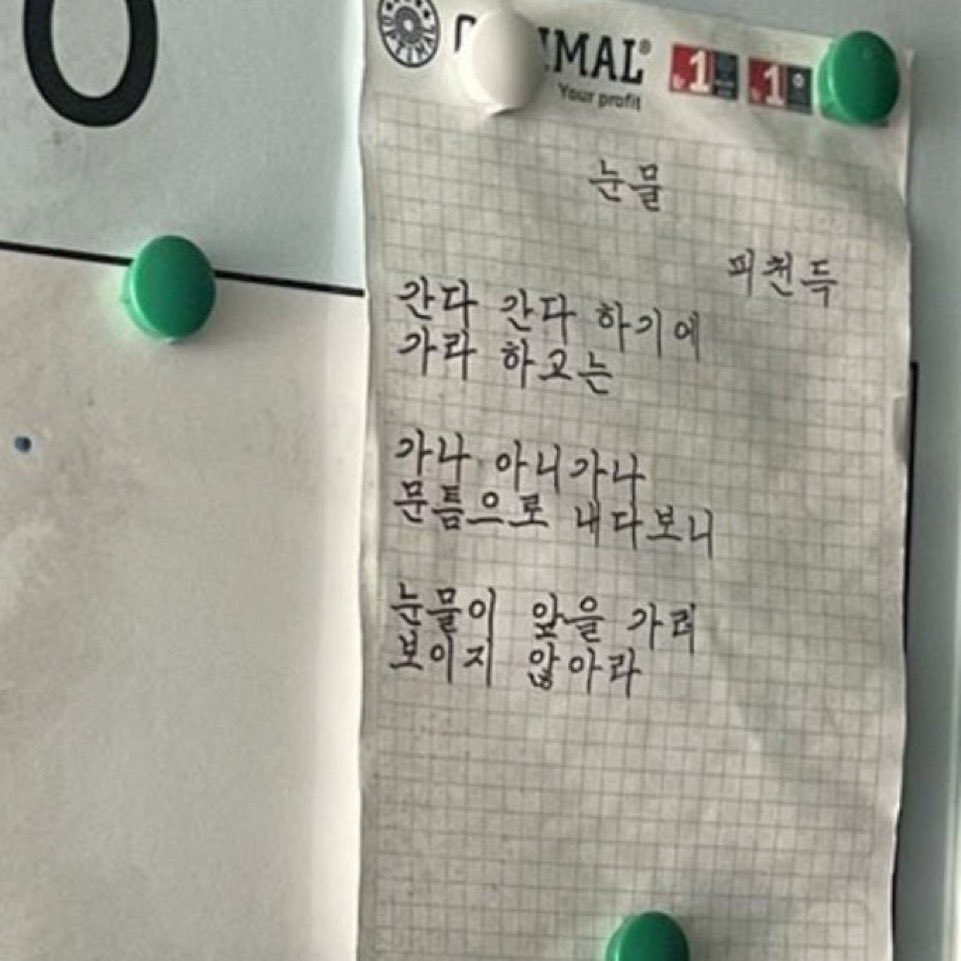 0
IMAL®
Your profit
1 1
눈물
피천득
간다 간다 하기에
가라 하고는
가나 아니가나
문틈으로 내다보니
눈물이 앞을 가려
보이지 않아라